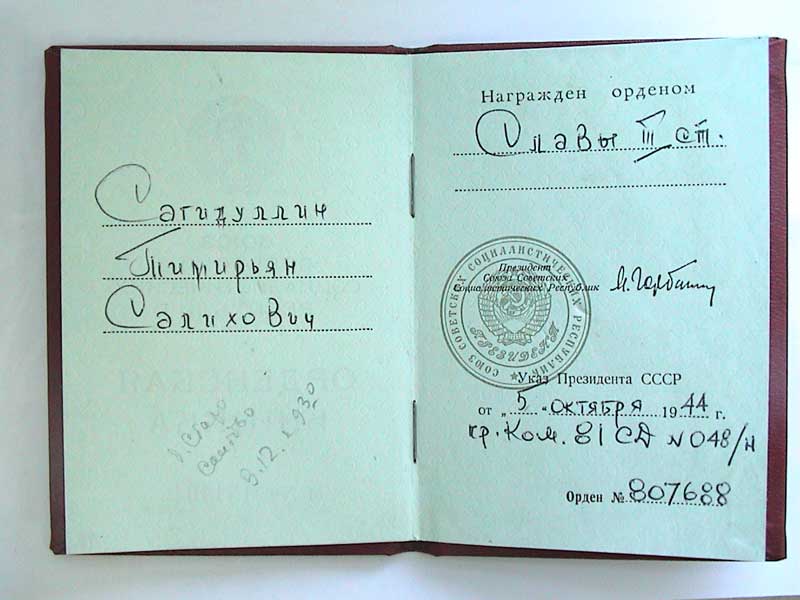 Сагидуллин
Тимирьян
Салихович
Награжден орденом
Славы III ст.
СОЮЗ СОВЕТСКИХ СОЦИАЛИСТИЧЕСКИХ РЕСПУБЛИК
Президент
Союза Советских
Социалистических Республик
ПРЕЗИДЕНТ
Указ Президента СССР
от „5" октября 1944 г.
пр. Ком. 81 СД N 048/н
Орден № 807688